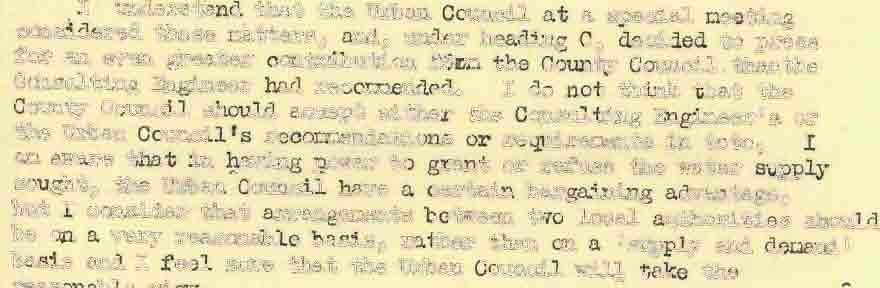 I understand that the Urban Council at a special meeting
considered these matters, and, under heading C, decided to press
for an even greater contribution from the County Council than the
Consulting Engineer had recommended. I do not think that the
County Council should accept either the Consulting Engineer's or
the Urban Council's recommendations or requirements in toto, I
am aware that in having power to grant or refuse the water supply
sought, the Urban Council have a certain bargaining advantage,
but I consider that arrangements between two local authorities should
be on a very reasonable basis, rather than on a 'supply and demand'
basis and I feel sure that the Urban Council will take the
reasonable view.